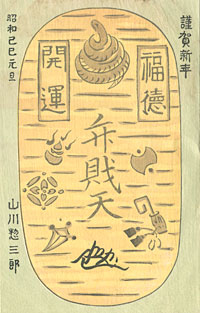 謹賀新年
福徳
開運
弁財天
昭和己巳元旦
山川惣三郎